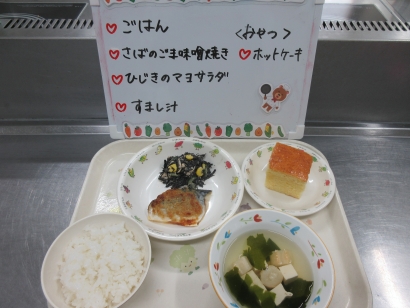 ♥ごはん
♥さばのごま味噌焼き
♥ひじきのマヨサラダ
♥すまし汁
<おやつ>
♥ホットケーキ